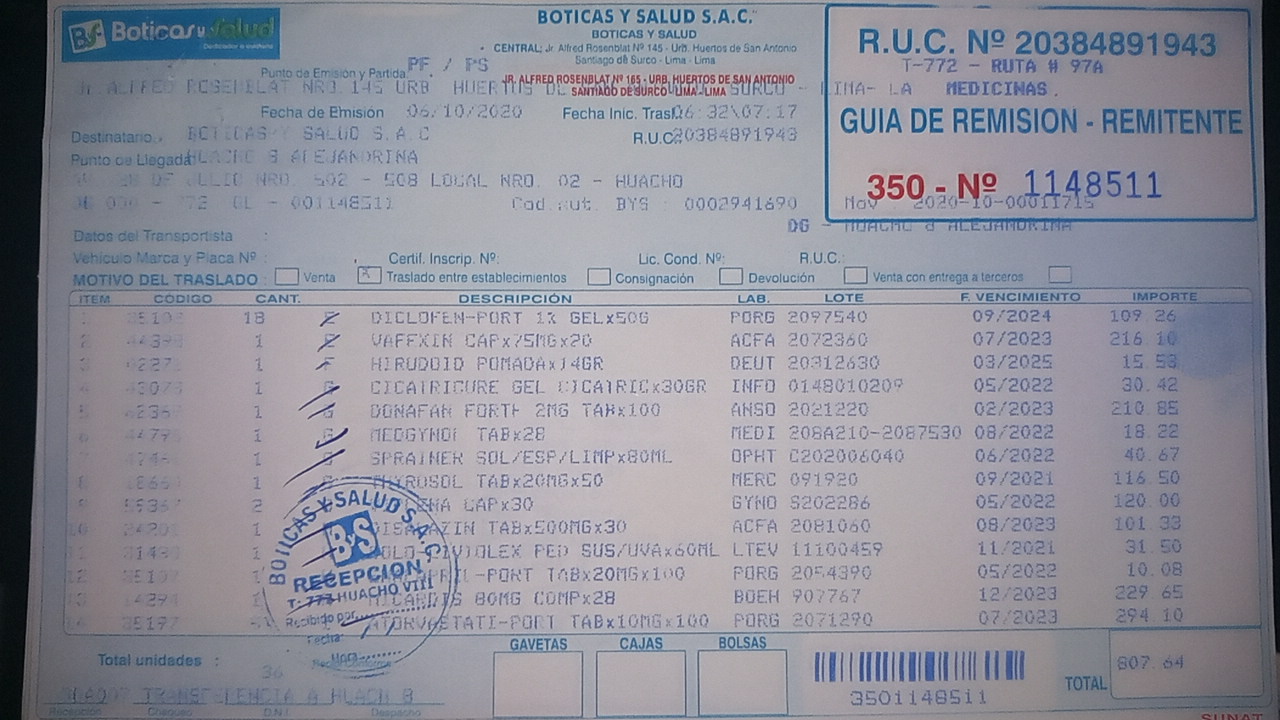 BS Boticas y Salud
BOTICAS Y SALUD S.A.C.
BOTICAS Y SALUD
CENTRAL: Jr. Alfred Rosenblat Nº 145 - Urb. Huertos de San Antonio
Santiago de Surco - Lima - Lima
JR. ALFRED ROSENBLAT Nº 165 - URB. HUERTOS DE SAN ANTONIO
SANTIAGO DE SURCO - LIMA - LIMA
R.U.C. Nº 20384891943
T-772 - RUTA # 97A
MEDICINAS.
GUIA DE REMISION - REMITENTE
350 - Nº 1148511
Punto de Emisión y Partida: PF / PS
Jr. ALFRED ROSEMBLAT NRO. 145 URB HUERTOS DE SURCO - LIMA- LA
Fecha de Emisión 06/10/2020 Fecha Inic. Trasl. 06:32\07:17
Destinatario: BOTICAS Y SALUD S.A.C R.U.C. 20384891943
Punto de Llegada: HUACHO 8 ALEJANDRINA
28 DE JULIO NRO. 502 - 508 LOCAL NRO. 02 - HUACHO
001148511 Cod.aut. BYS : 0002941690 Mov 2020-10-00011715
DG - HUACHO 8 ALEJANDRINA
Datos del Transportista :
Vehículo Marca y Placa Nº : Certif. Inscrip. Nº: Lic. Cond. Nº: R.U.C.:
MOTIVO DEL TRASLADO: Venta X Traslado entre establecimientos Consignación Devolución Venta con entrega a terceros
ITEM CÓDIGO CANT. DESCRIPCIÓN LAB. LOTE F. VENCIMIENTO IMPORTE
18 DICLOFEN-PORT 1% GELx50G PORG 2097540 09/2024 109.26
1 VAFEXIN CAPx75MGx20 ACFA 2072360 07/2023 216.10
1 HIRUDOID POMADAx14GR DEUT 20312630 03/2025 15.53
1 CICATRICURE GEL CICATRICx30GR INFO 0148010209 05/2022 30.42
1 DONAFAN FORTE 2MG TABx100 ANSO 2021220 02/2023 210.85
1 MEDGYNOL TABx28 MEDI 208A210-2087530 08/2022 18.22
1 SPRAINER SOL/ESP/LIMPx80ML OPHT C202006040 06/2022 40.67
1 THYROSOL TABx20MGx50 MERC 091920 09/2021 116.50
2 CAPx30 GYNO S202286 05/2022 120.00
1 TABx500MGx30 ACFA 2081060 08/2023 101.33
1 PED SUS/UVAx60ML LTEV 11100459 11/2021 31.50
1 TABx20MGx100 PORG 2054390 05/2022 10.08
1 MICARDIS 80MG COMPx28 BOEH 907767 12/2023 229.65
ATORVASTATI-PORT TABx10MGx100 PORG 2071290 07/2023 294.10
BOTICAS Y SALUD S.A.C.
B&S
RECEPCION
T: 772 HUACHO VIII
Recibido por
Fecha:
Hora
Total unidades : 36
GAVETAS CAJAS BOLSAS
3501148511
TOTAL 807.64
TRANSFERENCIA A HUACH 8
Recepción Chequeo D.N.I. Despacho
SUNAT